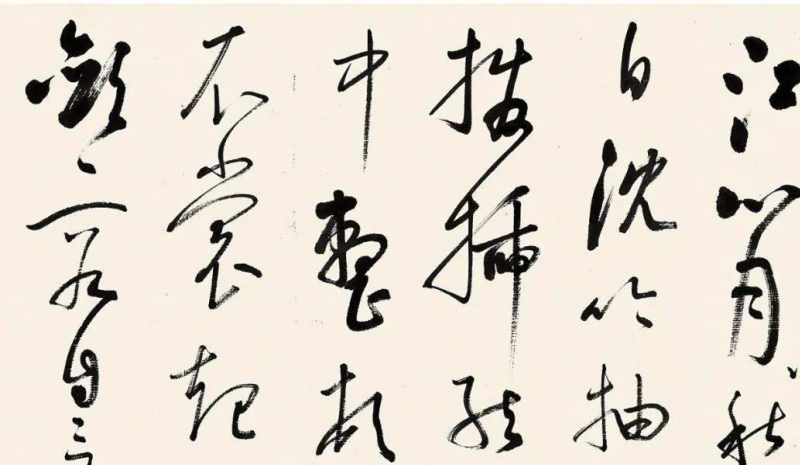 江心月秋
白沈吟抽
撥插絃
中整頓
衣裳起
斂容自言